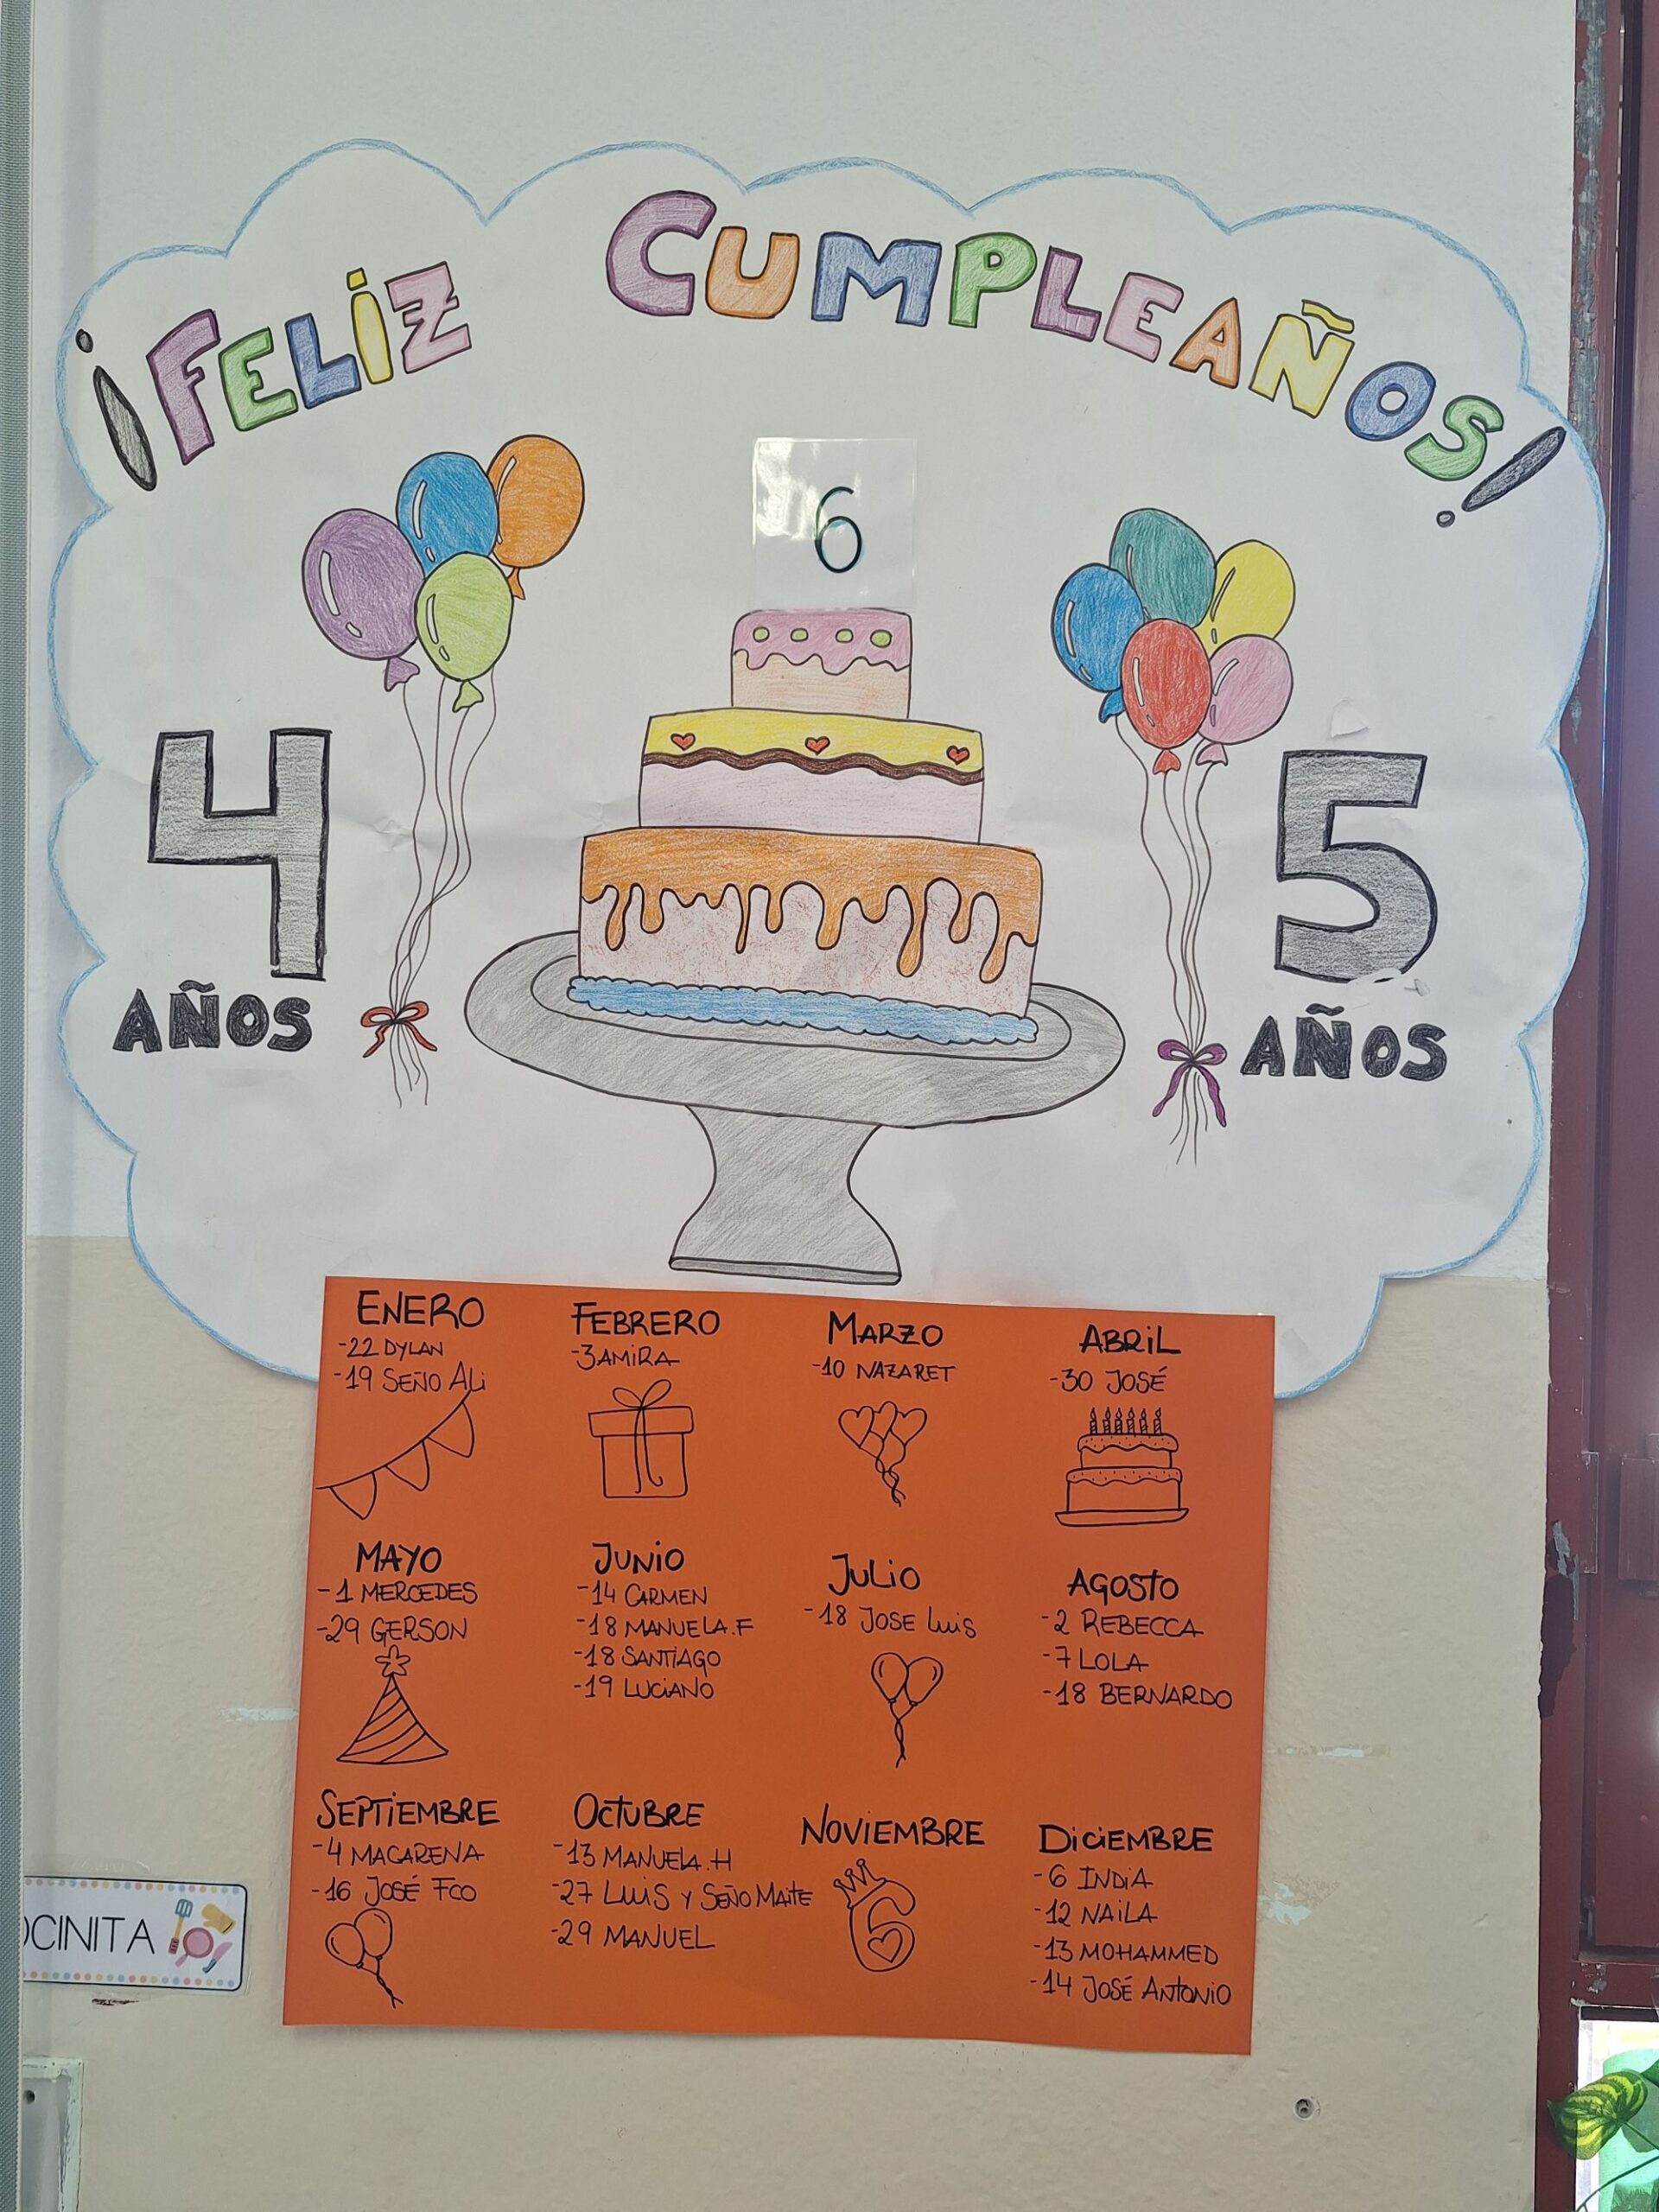 ¡FELIZ CUMPLEAÑOS!
6
4
AÑOS
5
AÑOS
ENERO
-22 DYLAN
-19 SEÑO ALI
FEBRERO
-3 AMIRA
MARZO
-10 NAZARET
ABRIL
-30 JOSÉ
MAYO
-1 MERCEDES
-29 GERSON
JUNIO
-14 CARMEN
-18 MANUELA.F
-18 SANTIAGO
-19 LUCIANO
JULIO
-18 JOSE LUIS
AGOSTO
-2 REBECCA
-7 LOLA
-18 BERNARDO
SEPTIEMBRE
-4 MACARENA
-16 JOSÉ FCO
OCTUBRE
-13 MANUELA.H
-27 LUIS Y SEÑO MAITE
-29 MANUEL
NOVIEMBRE
6
DICIEMBRE
-6 INDIA
-12 NAILA
-13 MOHAMMED
-14 JOSÉ ANTONIO
OCINITA